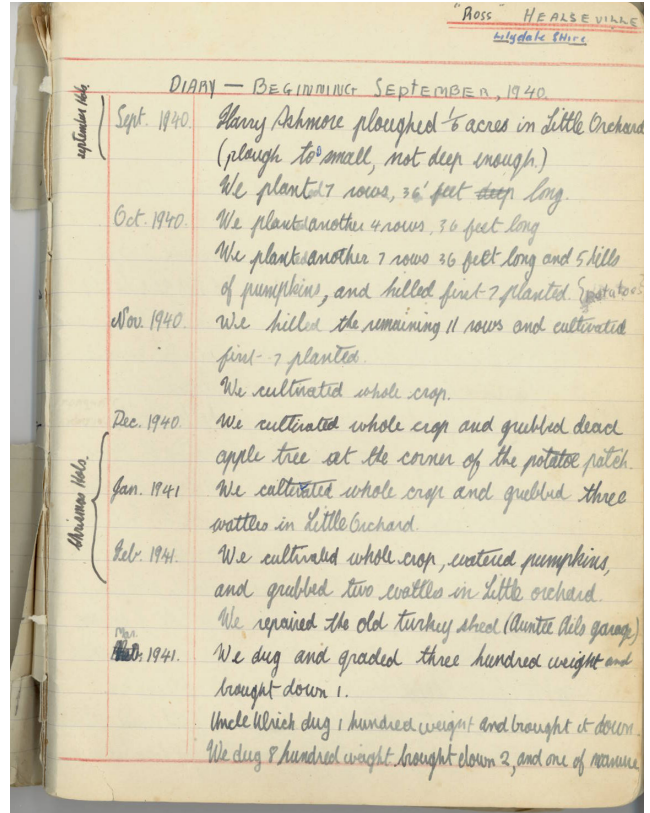 "Ross" HEALSEVILLE
Lilydale Shire
DIARY — BEGINNING SEPTEMBER, 1940.
september Hols.
Sept. 1940. Harry Ashmore ploughed 1/6 acres in Little Orchard
(plough to small, not deep enough.)
We planted 7 rows, 36' feet deep long.
Oct. 1940. We planted another 4 rows, 36 feet long
We planted another 7 rows 36 feet long and 5 hills
of pumpkins, and hilled first 7 planted. {potatoes}
Nov. 1940. We hilled the remaining 11 rows and cultivated
first 7 planted.
We cultivated whole crop.
Dec. 1940. We cultivated whole crop and grubbed dead
apple tree at the corner of the potatoe patch.
Chrismas Hols.
Jan. 1941 We cultivated whole crop and grubbed three
wattles in Little Orchard.
Feb. 1941. We cultivated whole crop, watered pumpkins,
and grubbed two wattles in Little orchard.
We repaired the old turkey shed (Auntie Ails garage)
Mar. 1941. We dug and graded three hundred weight and
brought down 1.
Uncle Ulrich dug 1 hundred weight and brought it down.
We dug 8 hundred weight brought down 2, and one of manure